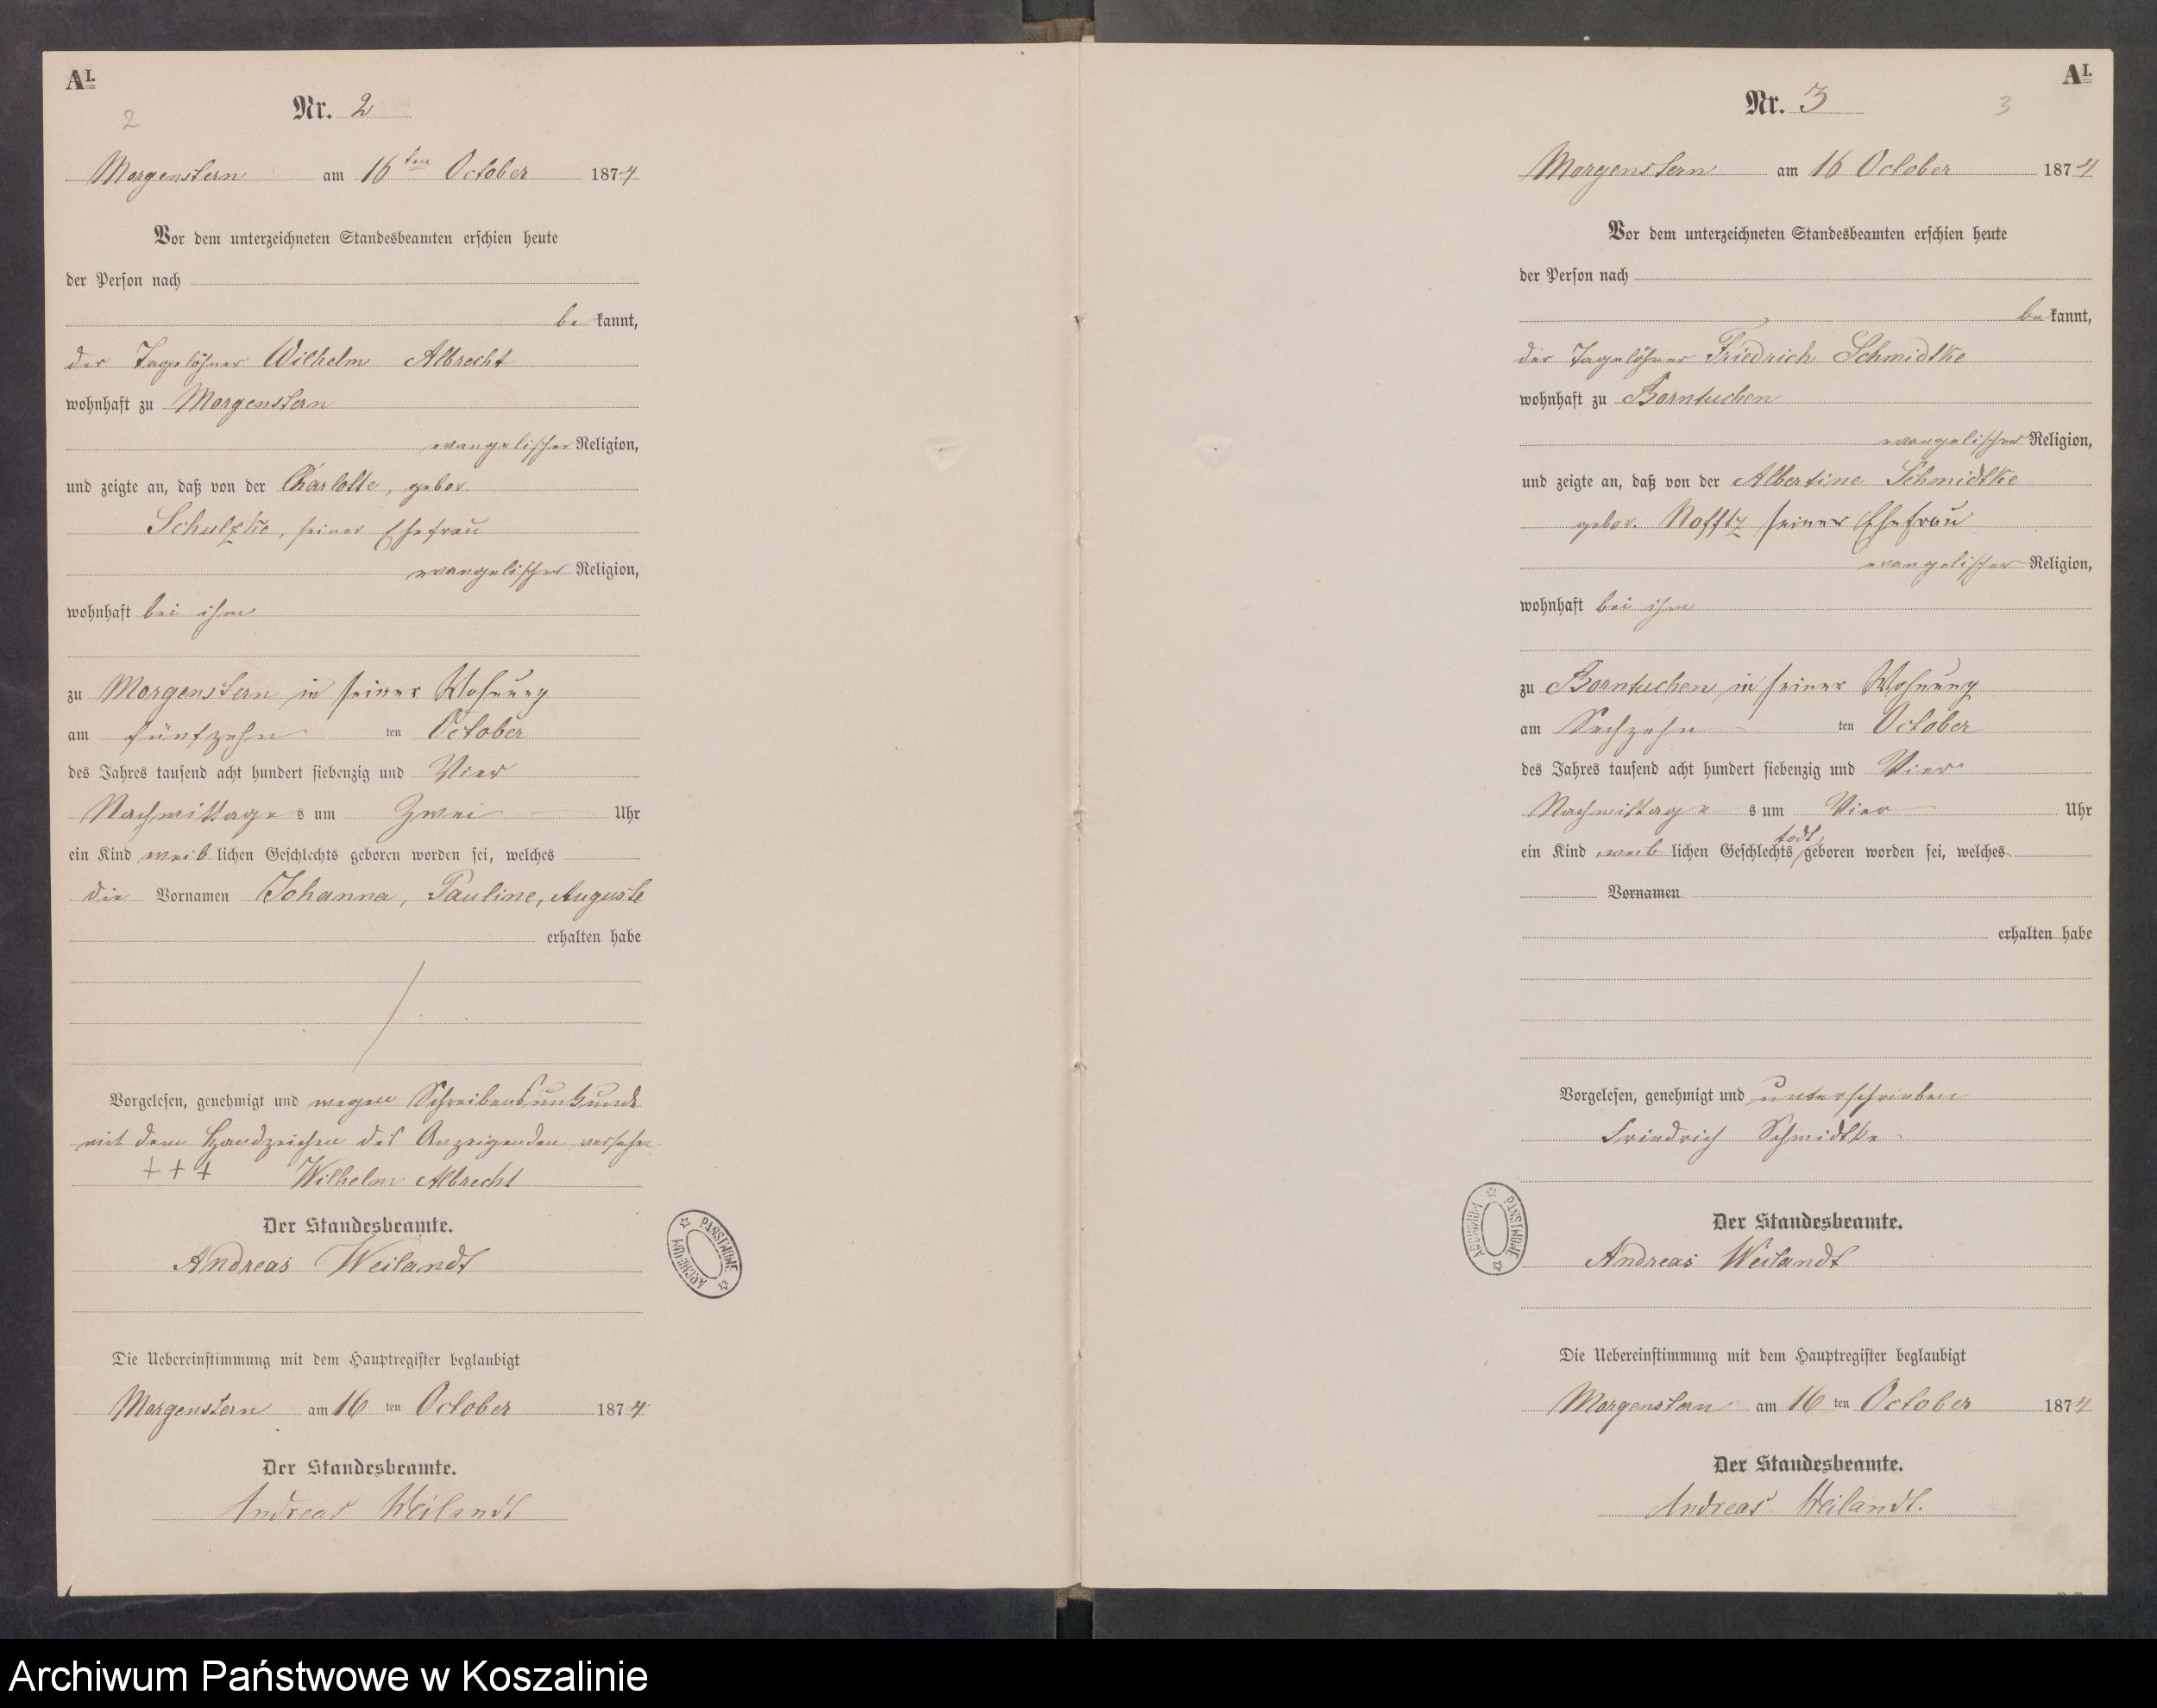 A I.
2
Nr. 2
Morgenstern am 16ten October 1874
Vor dem unterzeichneten Standesbeamten erschien heute
der Person nach
be kannt,
der Tagelöhner Wilhelm Albrecht
wohnhaft zu Morgenstern
evangelischer Religion,
und zeigte an, daß von der Charlotte, gebor.
Schulzke, seiner Ehefrau
evangelischer Religion,
wohnhaft bei ihm
zu Morgenstern in seiner Wohnung
am fünfzehn ten October
des Jahres tausend acht hundert siebenzig und Vier
Nachmittage s um Zwei Uhr
ein Kind weib lichen Geschlechts geboren worden sei, welches
die Vornamen Johanna, Pauline, Auguste
erhalten habe
Vorgelesen, genehmigt und wegen Schreibensunkunde
mit dem Handzeichen des Anzeigenden versehen
+++ Wilhelm Albrecht
Der Standesbeamte.
Andreas Weilandt
Die Uebereinstimmung mit dem Hauptregister beglaubigt
Morgenstern am 16 ten October 1874
Der Standesbeamte.
Andreas Weilandt
ARCHIWUM PAŃSTWOWE
A I.
Nr. 3
3
Morgenstern am 16 October 1874
Vor dem unterzeichneten Standesbeamten erschien heute
der Person nach
be kannt,
der Tagelöhner Friedrich Schmidtke
wohnhaft zu Borntuchen
evangelischer Religion,
und zeigte an, daß von der Albertine Schmidtke
gebor. Nofftz seiner Ehefrau
evangelischer Religion,
wohnhaft bei ihm
zu Borntuchen in seiner Wohnung
am Sechzehn ten October
des Jahres tausend acht hundert siebenzig und Vier
Nachmittage s um Vier Uhr
todt
ein Kind weib lichen Geschlechts geboren worden sei, welches
Vornamen
erhalten habe
Vorgelesen, genehmigt und unterschrieben
Friedrich Schmidtke
Der Standesbeamte.
Andreas Weilandt
Die Uebereinstimmung mit dem Hauptregister beglaubigt
Morgenstern am 16 ten October 1874
Der Standesbeamte.
Andreas Weilandt.
ARCHIWUM PAŃSTWOWE
Archiwum Państwowe w Koszalinie